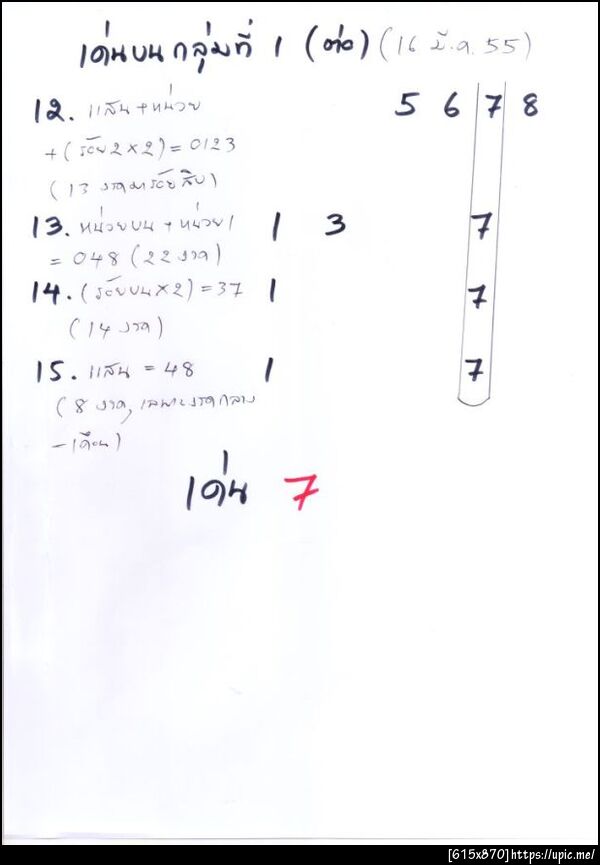 เด่นบนกลุ่มที่ 1 (ต่อ) (16 มี.ค. 55)
12. แสน + หน่วย 5 6 7 8
+ (ร้อย 2 x 2) = 0123
(13 งวดมาร้อยสิบ)
13. หน่วยบน + หน่วย 1 3 7
= 048 (22 งวด)
14. (ร้อยบน x 2) = 37 1 7
(14 งวด)
15. แสน = 48 1 7
(8 งวด, เฉพาะงวดกลาง
- เดือน)
เด่น 7
[615x870]https://upic.me/